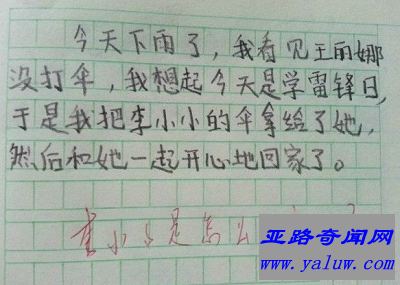 今天下雨了，我看见王丽娜
没打伞，我想起今天是学雷锋日，
于是我把李小小的伞拿给了她，
然后和她一起开心地回家了。
李小小是怎么
亚路奇闻网
www.yaluw.com